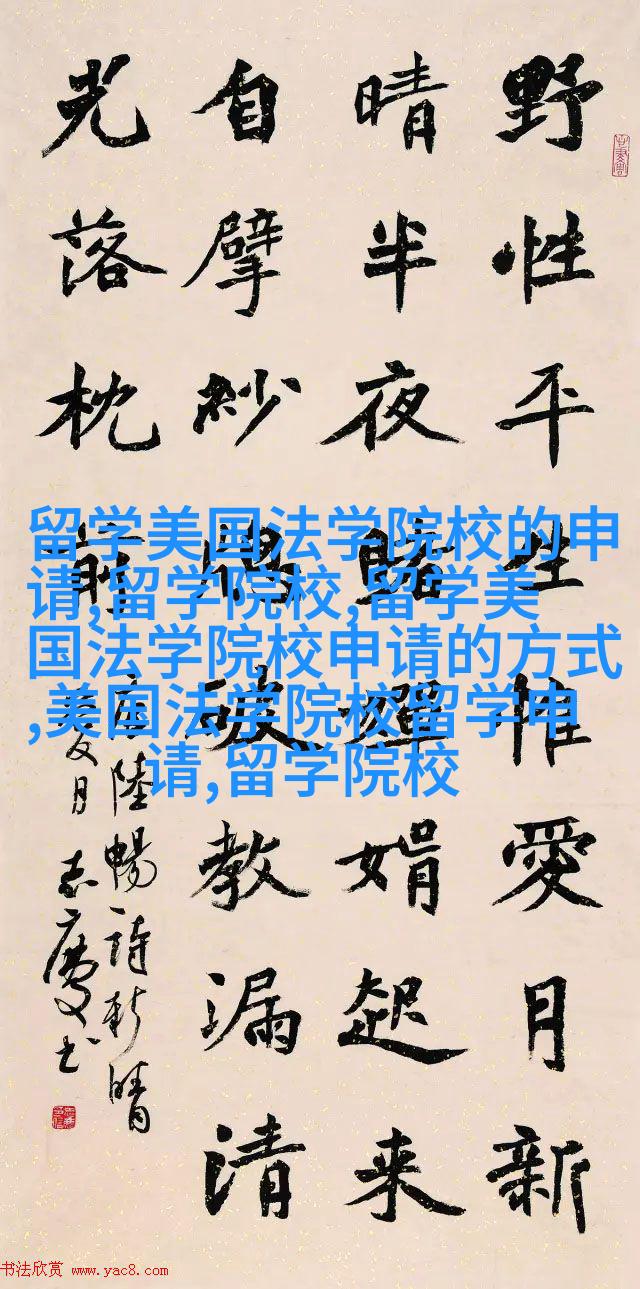 野性平生惟愛月新
晴半夜睹嬋娟起来
自擘紗破教漏清
光落枕前
唐陸暢詩新晴
愛月志慶书
留学美国法学院校的申
请,留学院校,留学美
国法学院校申请的方式
,美国法学院校留学申
请,留学院校
书法欣赏 www.yac8.com